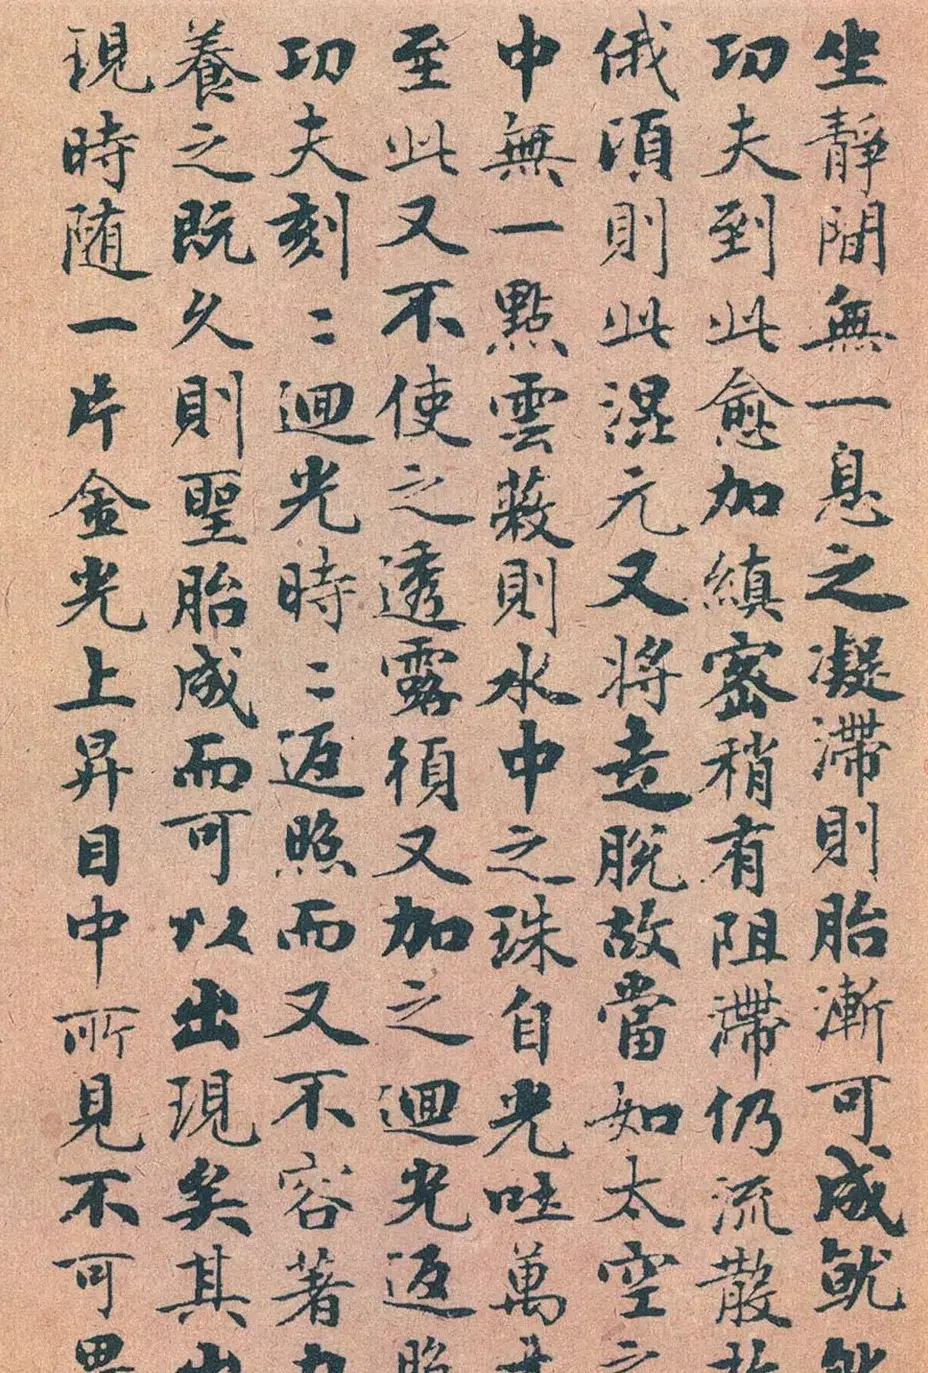 坐靜間無一息之凝滯則胎漸可成就
功夫到此愈加縝密稍有阻滯仍流散
俄頃則此混元又將走脫故當如太空之
中無一點雲蔽則水中之珠自光吐萬
至此又不使之透露須又加之迴光返照
功夫刻〻迴光時〻返照而又不容著力
養之既久則聖胎成而可以出現矣其出
現時随一片金光上昇目中所見不可